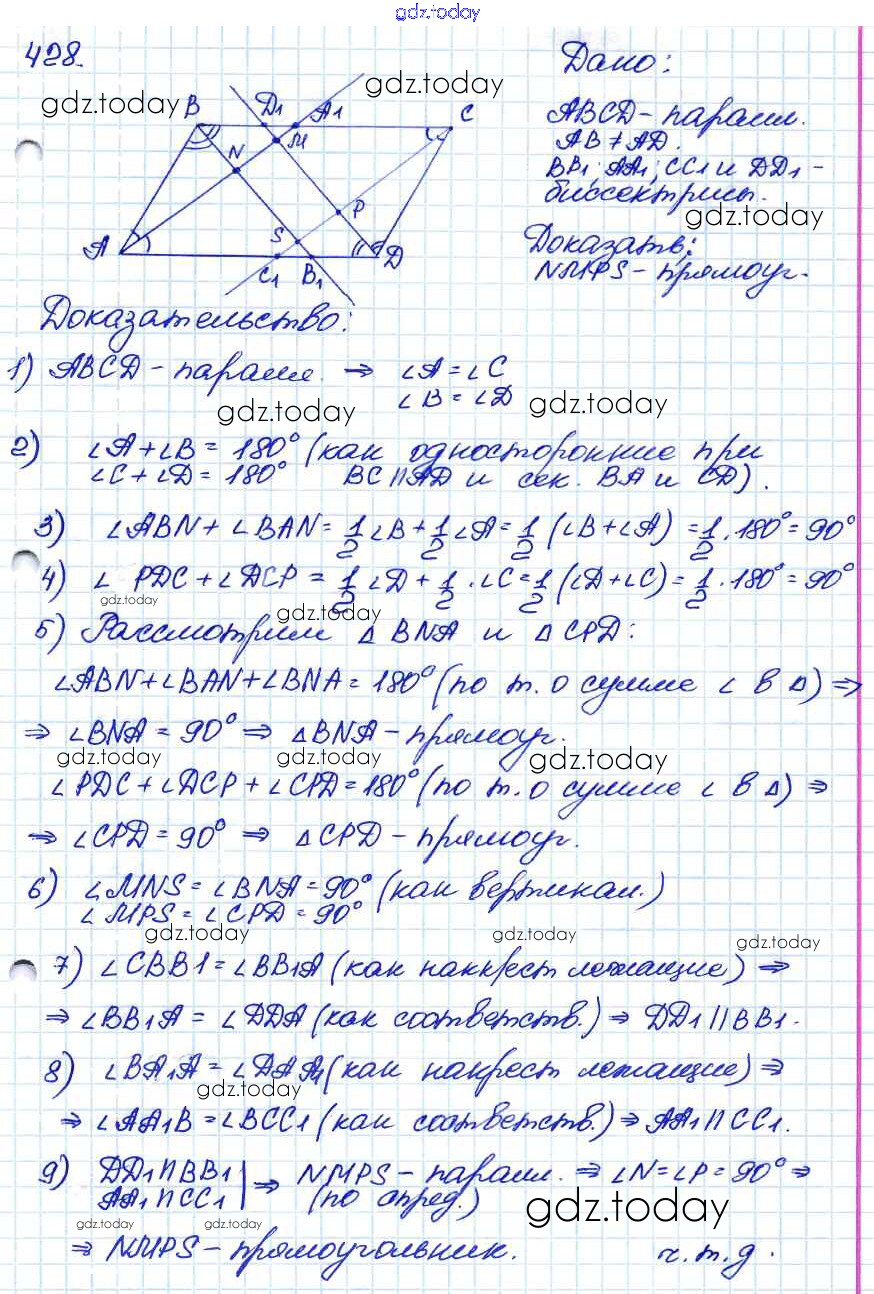 gdz.today
428.
Дано:
gdz.today
gdz.today
B D1 A1 C
M
N
P
S
A D
C1 B1
ABCD - паралл.
AB ≠ AD.
BB1; AA1; CC1 и DD1 -
биссектрисы.
gdz.today
Доказать:
NMPS - прямоуг.
Доказательство:
1) ABCD - паралл. ⇒ ∠A = ∠C
∠B = ∠D
gdz.today gdz.today
2) ∠A + ∠B = 180° (как односторонние при
∠C + ∠D = 180° BC || AD и сек. BA и CD).
3) ∠ABN + ∠BAN = 1/2 ∠B + 1/2 ∠A = 1/2 (∠B + ∠A) = 1/2 · 180° = 90°
4) ∠PDC + ∠DCP = 1/2 ∠D + 1/2 · ∠C = 1/2 (∠D + ∠C) = 1/2 · 180° = 90°
gdz.today gdz.today
5) Рассмотрим △ BNA и △ CPD:
∠ABN + ∠BAN + ∠BNA = 180° (по т. о сумме ∠ в △) ⇒
⇒ ∠BNA = 90° ⇒ △BNA - прямоуг.
gdz.today gdz.today gdz.today
∠PDC + ∠DCP + ∠CPD = 180° (по т. о сумме ∠ в △) ⇒
⇒ ∠CPD = 90° ⇒ △CPD - прямоуг.
6) ∠MNS = ∠BNA = 90° (как вертикал.)
∠MPS = ∠CPD = 90°
gdz.today gdz.today gdz.today
7) ∠CBB1 = ∠BB1A (как накрест лежащие) ⇒
⇒ ∠BB1A = ∠DDA (как соответств.) ⇒ DD1 || BB1.
8) ∠BA1A = ∠DAA1 (как накрест лежащие) ⇒
gdz.today
⇒ ∠AA1B = ∠BCC1 (как соответств.) ⇒ AA1 || CC1.
9) DD1 || BB1 | ⇒ NMPS - паралл. ⇒ ∠N = ∠P = 90° ⇒
AA1 || CC1 | (по опред.)
gdz.today gdz.today gdz.today
⇒ NMPS - прямоугольник. ч.т.д.